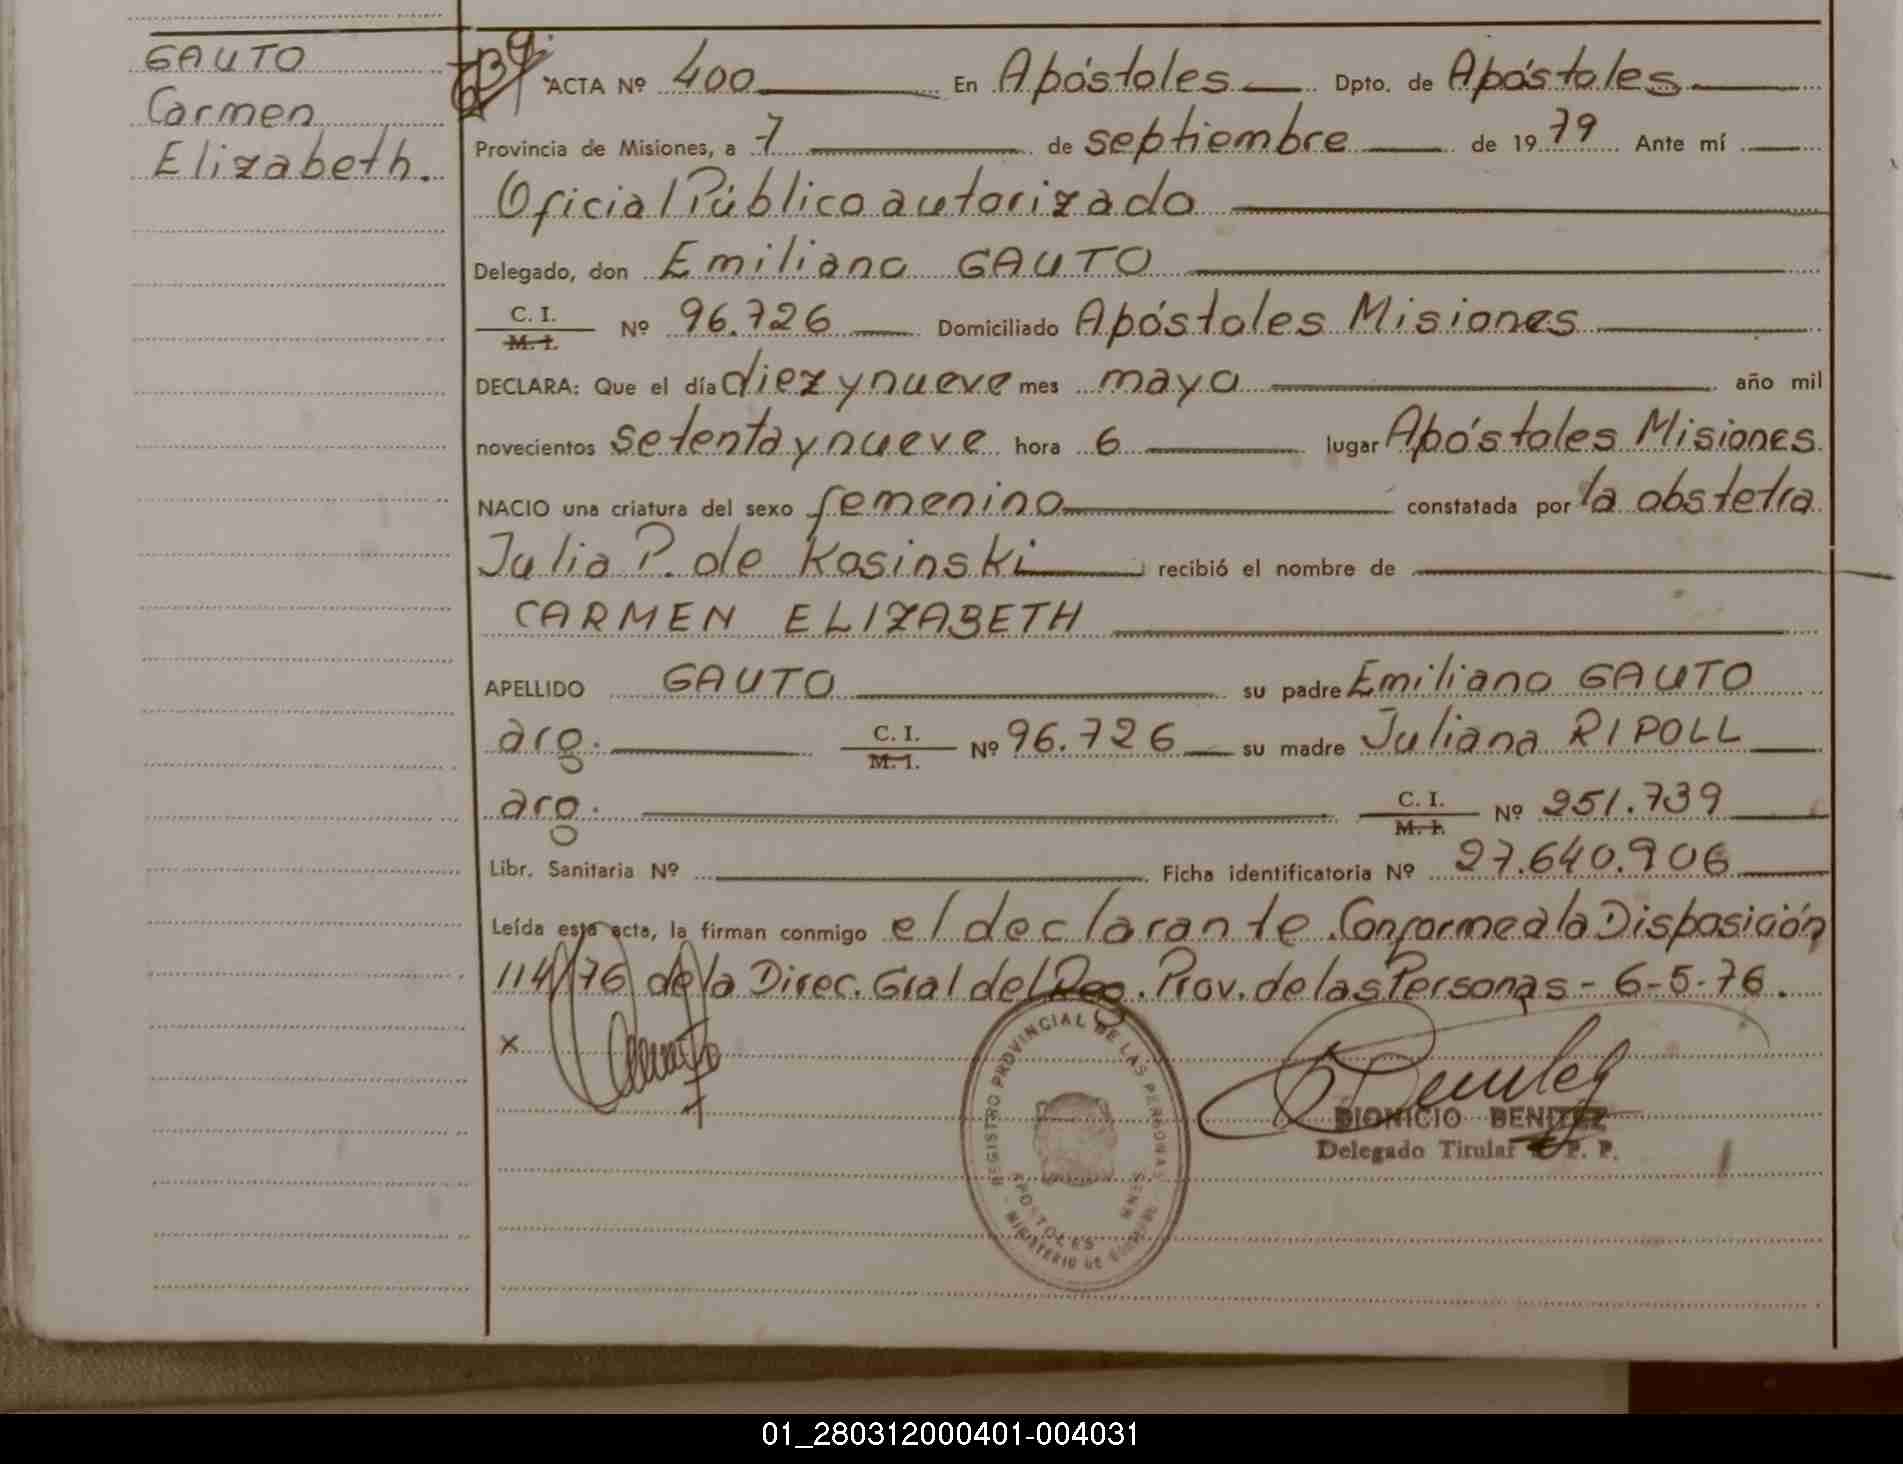 GAUTO
Carmen
Elizabeth.
ACTA Nº 400 En Apóstoles Dpto. de Apóstoles
Provincia de Misiones, a 7 de septiembre de 1979 Ante mí
Oficial Público autorizado
Delegado, don Emiliano GAUTO
C. I.
M. I. Nº 96.726 Domiciliado Apóstoles Misiones
DECLARA: Que el día diez y nueve mes mayo año mil
novecientos setenta y nueve hora 6 lugar Apóstoles Misiones.
NACIO una criatura del sexo femenino constatada por la obstetra
Julia P. de Kosinski recibió el nombre de
CARMEN ELIZABETH
APELLIDO GAUTO su padre Emiliano GAUTO
arg. C. I. M. I. Nº 96.726 su madre Juliana RIPOLL
arg. C. I. M. I. Nº 251.739
Libr. Sanitaria Nº Ficha identificatoria Nº 27.640.906
Leída esta acta, la firman conmigo el declarante. Conforme a la Disposición
114/76 de la Direc. Gral del Reg. Prov. de las Personas - 6-5-76.
x
REGISTRO PROVINCIAL DE LAS PERSONAS
APOSTOLES
MNES
MINISTERIO DE GOBIERNO
DIONICIO BENITEZ
Delegado Titular R. P. P.
01_280312000401-004031